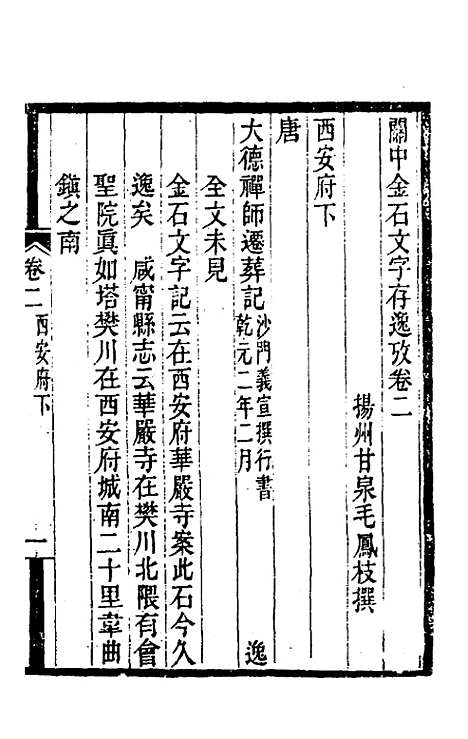 關中金石文字存逸攷卷二
揚州甘泉毛鳳枝撰
西安府下
唐
大德禪師遷葬記 沙門義宣撰行書 乾元二年二月 逸
全文未見
金石文字記云在西安府華嚴寺案此石今久
逸矣 咸甯縣志云華嚴寺在樊川北隈有會
聖院眞如塔樊川在西安府城南二十里韋曲
鎮之南
卷二 西安府下 一